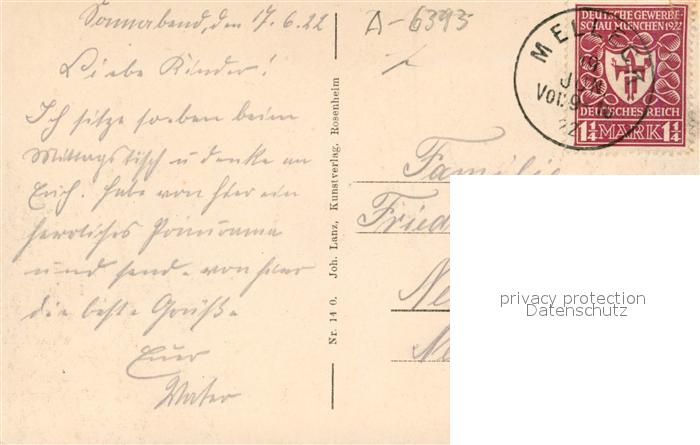 Sonnabend, den 17.6.22
Liebe Kinder!
Ich sitze soeben beim
Mittagstisch u denke an
Euch. habe von hier ein
herrliches Panorama
und send. von hier
die beste Grüße
Euer
Vater
Nr. 14 0. Joh. Lanz, Kunstverlag, Rosenheim
A-6393
MELLECK
JUN
Vor. 9
22
DEUTSCHE GEWERBE-
SCHAU MÜNCHEN 1922
DEUTSCHES REICH
1¼ MARK 1¼
Familie
Fried
Ne
privacy protection
Datenschutz